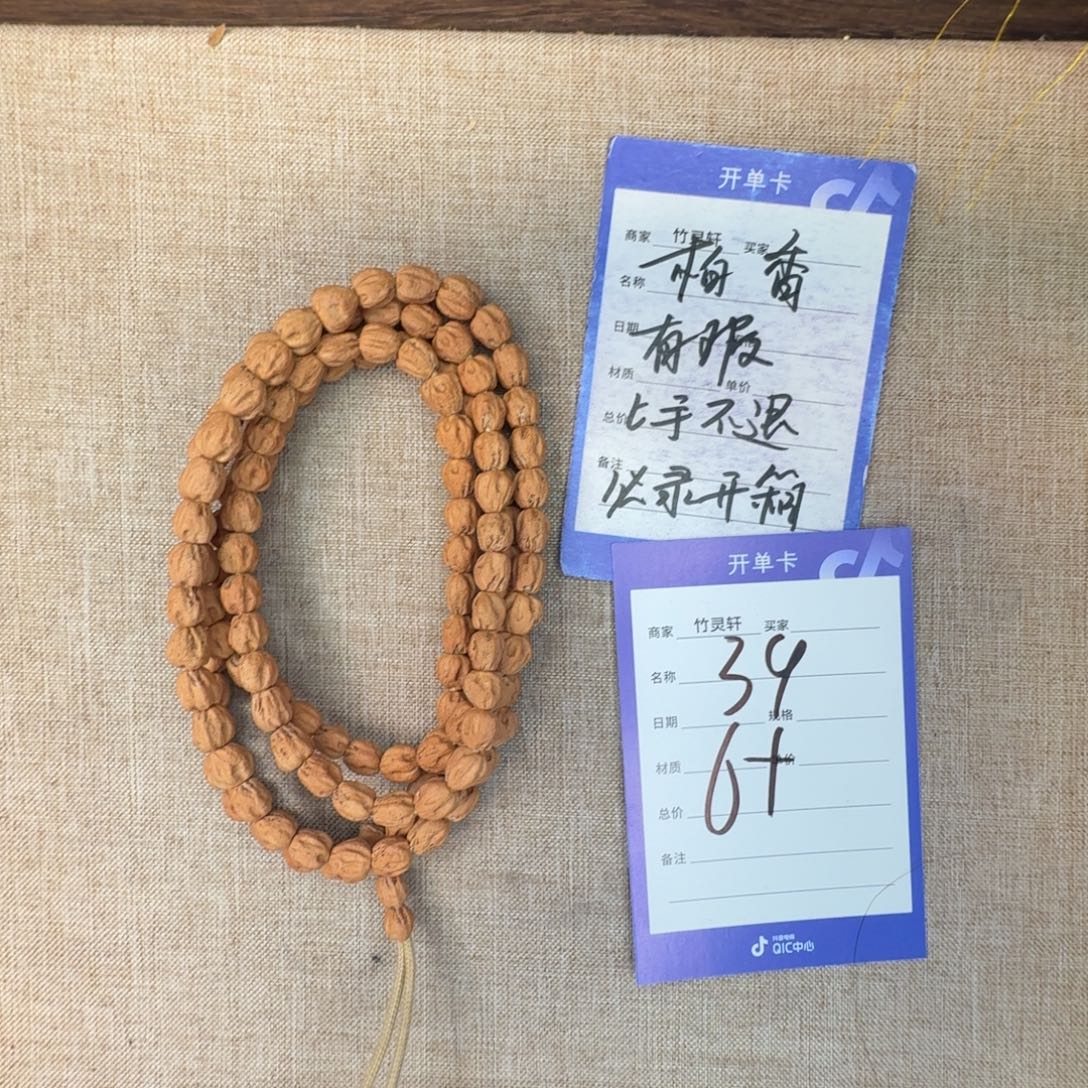 开单卡
商家 竹灵轩 买家
名称
梅香
日期
有瑕
材质 单价
总价 上手不退
备注
必录开箱
开单卡
商家 竹灵轩 买家
名称 39
日期 规格
材质 单价
总价 6+
备注
抖音电商
QIC中心